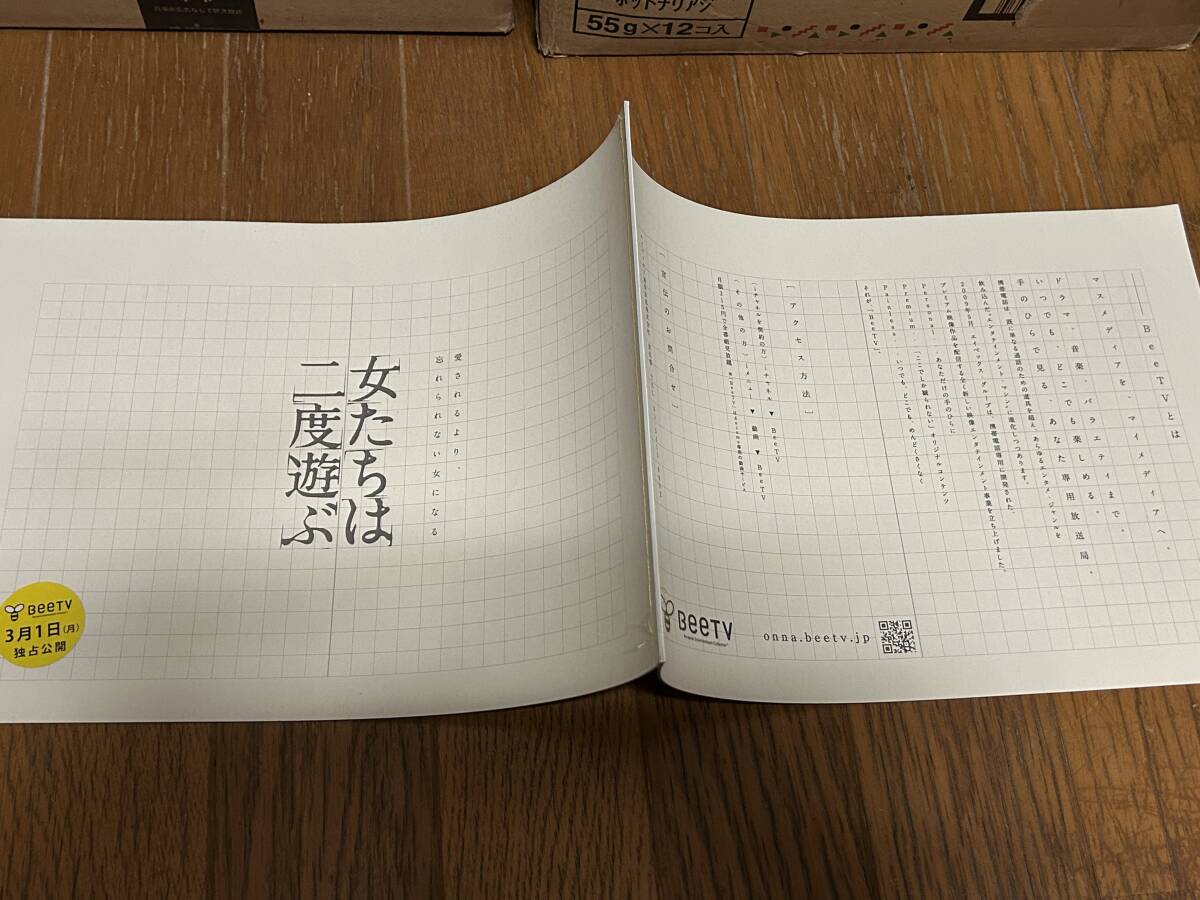 ホットチリアジ
55g×12コ入
愛されるより、
忘れられない女になる
女たちは
二度遊ぶ
BeeTV
3月1日(月)
独占公開
――BeeTVとは
マスメディアを、マイメディアへ。
ドラマ、音楽、バラエティまで。
いつでも、どこでも楽しめる。
手のひらで見る、あなた専用放送局。
携帯電話は、既に単なる通話のための道具を超え、あらゆるエンタメ・ジャンルを
飲み込んだ"エンタテインメント マシン"に進化しつつあります。
2009年5月、エイベックス・グループは、携帯電話専用に開発された、
プレミアム映像作品を配信する全く新しい映像エンタテインメント事業を立ち上げました。
Personal
あなただけの手のひらに
Premium
「ここでしか観られない」オリジナルコンテンツ
Painless
いつでも、どこでも、めんどくさくなく
それが、「BeeTV」。
[アクセス方法]
▼ BeeTV
(その他の方) iメニュー ▼ 動画 ▼ BeeTV
月額315円で全番組見放題
[宣伝のお問合せ]
BeeTV
onna.beetv.jp